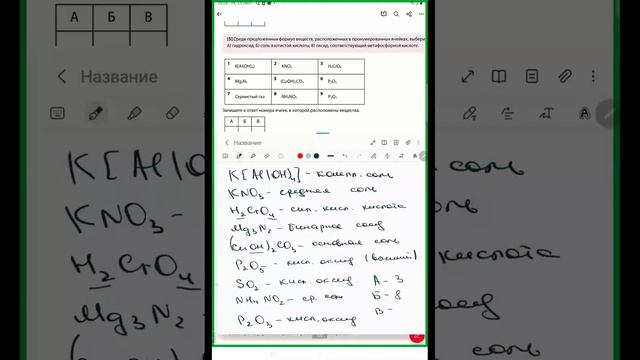 А Б В
[5] Среди предложенных формул веществ, расположенных в пронумерованных ячейках, выбери
А) гидроксид, Б) соль азотистой кислоты, В) оксид, соответствующий метафосфорной кислоте.
1 K[Al(OH)₄] 2 KNO₃ 3 H₂CrO₄
4 Mg₃N₂ 5 (CuOH)₂CO₃ 6 P₂O₅
7 Сернистый газ 8 NH₄NO₂ 9 P₂O₃
Запишите в ответ номера ячеек, в которой расположены вещества.
А Б В
Название
K[Al(OH)₄] - компл. соль
KNO₃ - средняя соль
H₂CrO₄ - сил. кисл. кислота
Mg₃N₂ - бинарное соед
(CuOH)₂CO₃ - основная соль
P₂O₅ - кисл. оксид (высший)
SO₂ - кисл. оксид А - 3
NH₄NO₂ - ср. соль Б - 8
P₂O₃ - кисл. оксид В -
Название
K[Al(OH)
KNO₃ -
H₂CrO₄
Mg₃N₂
А Б В
кислота